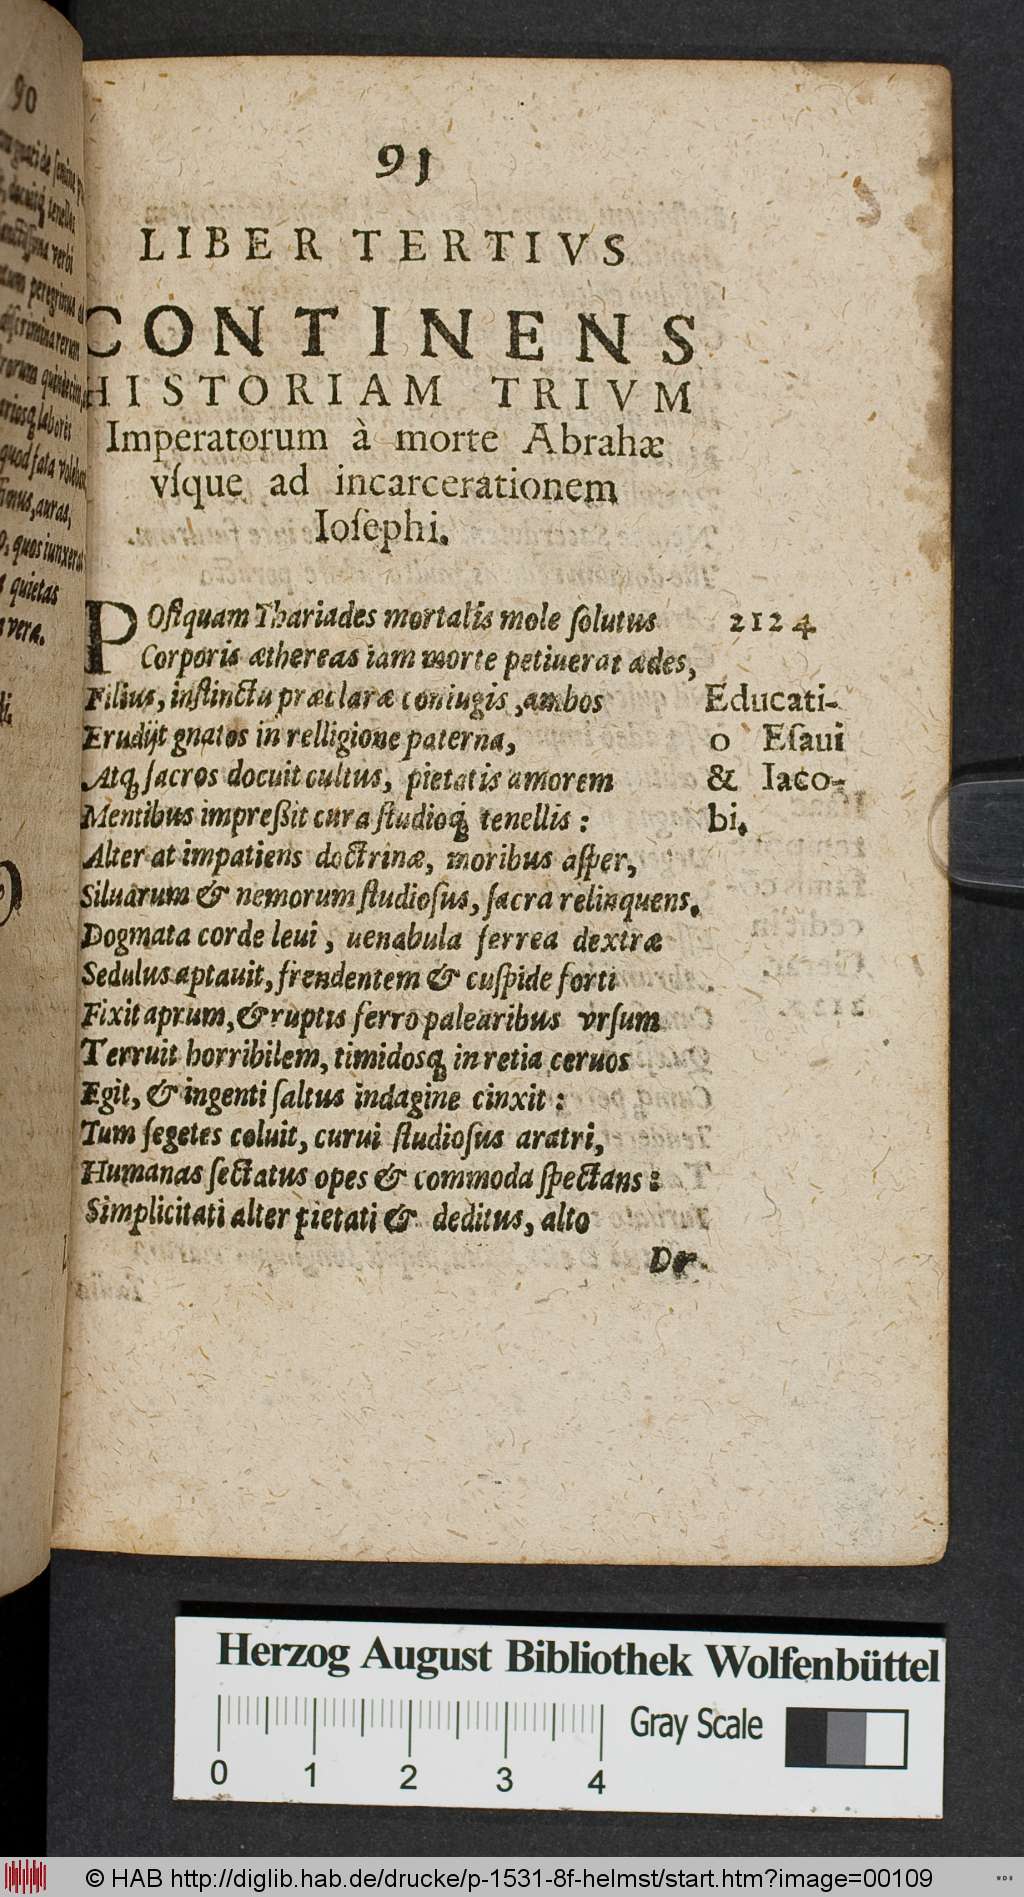 90
91
LIBER TERTIVS
CONTINENS
HISTORIAM TRIVM
Imperatorum à morte Abrahæ
vſque ad incarcerationem
Ioſephi.
POſtquam Thariades mortalis mole ſolutus 2124
Corporis æthereas iam morte petiuerat ædes,
Filius, inſtinctu præclaræ coniugis, ambos Educati-
Erudijt gnatos in relligione paterna, o Eſaui
Atq; ſacros docuit cultus, pietatis amorem & Iaco-
Mentibus impreßit cura ſtudioq; tenellis: bi.
Alter at impatiens doctrinæ, moribus aſper,
Siluarum & nemorum ſtudioſus, ſacra relinquens.
Dogmata corde leui, uenabula ferrea dextræ
Sedulus aptauit, frendentem & cuſpide forti
Fixit aprum, & ruptis ferro palearibus vrſum
Terruit horribilem, timidosq; in retia ceruos
Egit, & ingenti ſaltus indagine cinxit:
Tum ſegetes coluit, curui ſtudioſus aratri,
Humanas ſectatus opes & commoda ſpectans:
Simplicitati alter pietati & deditus, alto
De
Herzog August Bibliothek Wolfenbüttel
Gray Scale
0 1 2 3 4
© HAB http://diglib.hab.de/drucke/p-1531-8f-helmst/start.htm?image=00109